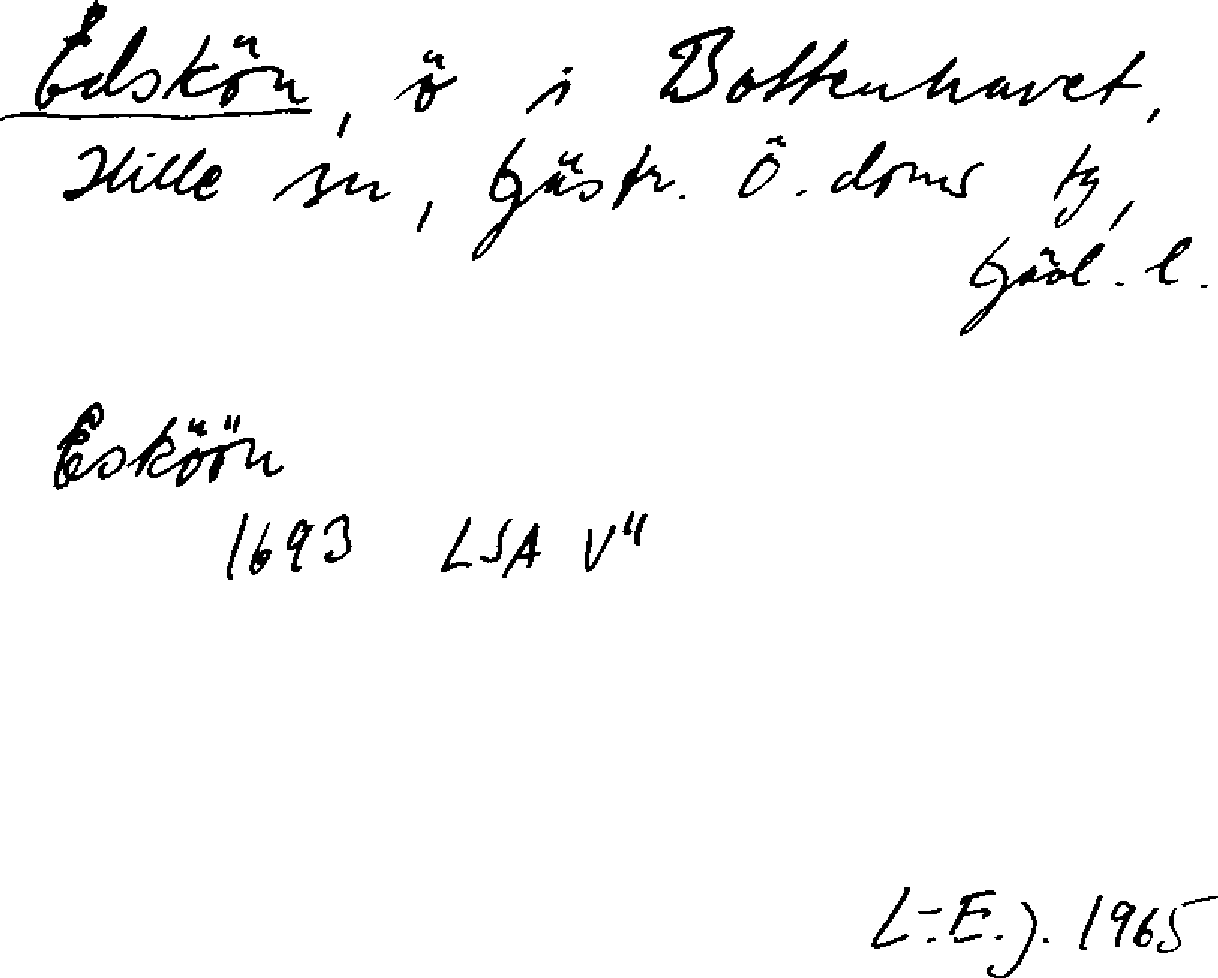 Edskön, ö i Bottenhavet,
Hille sn, Gästr. Ö. doms tg,
Gävl. l.
Esköön
1693 LSA V"
L-E.J. 1965